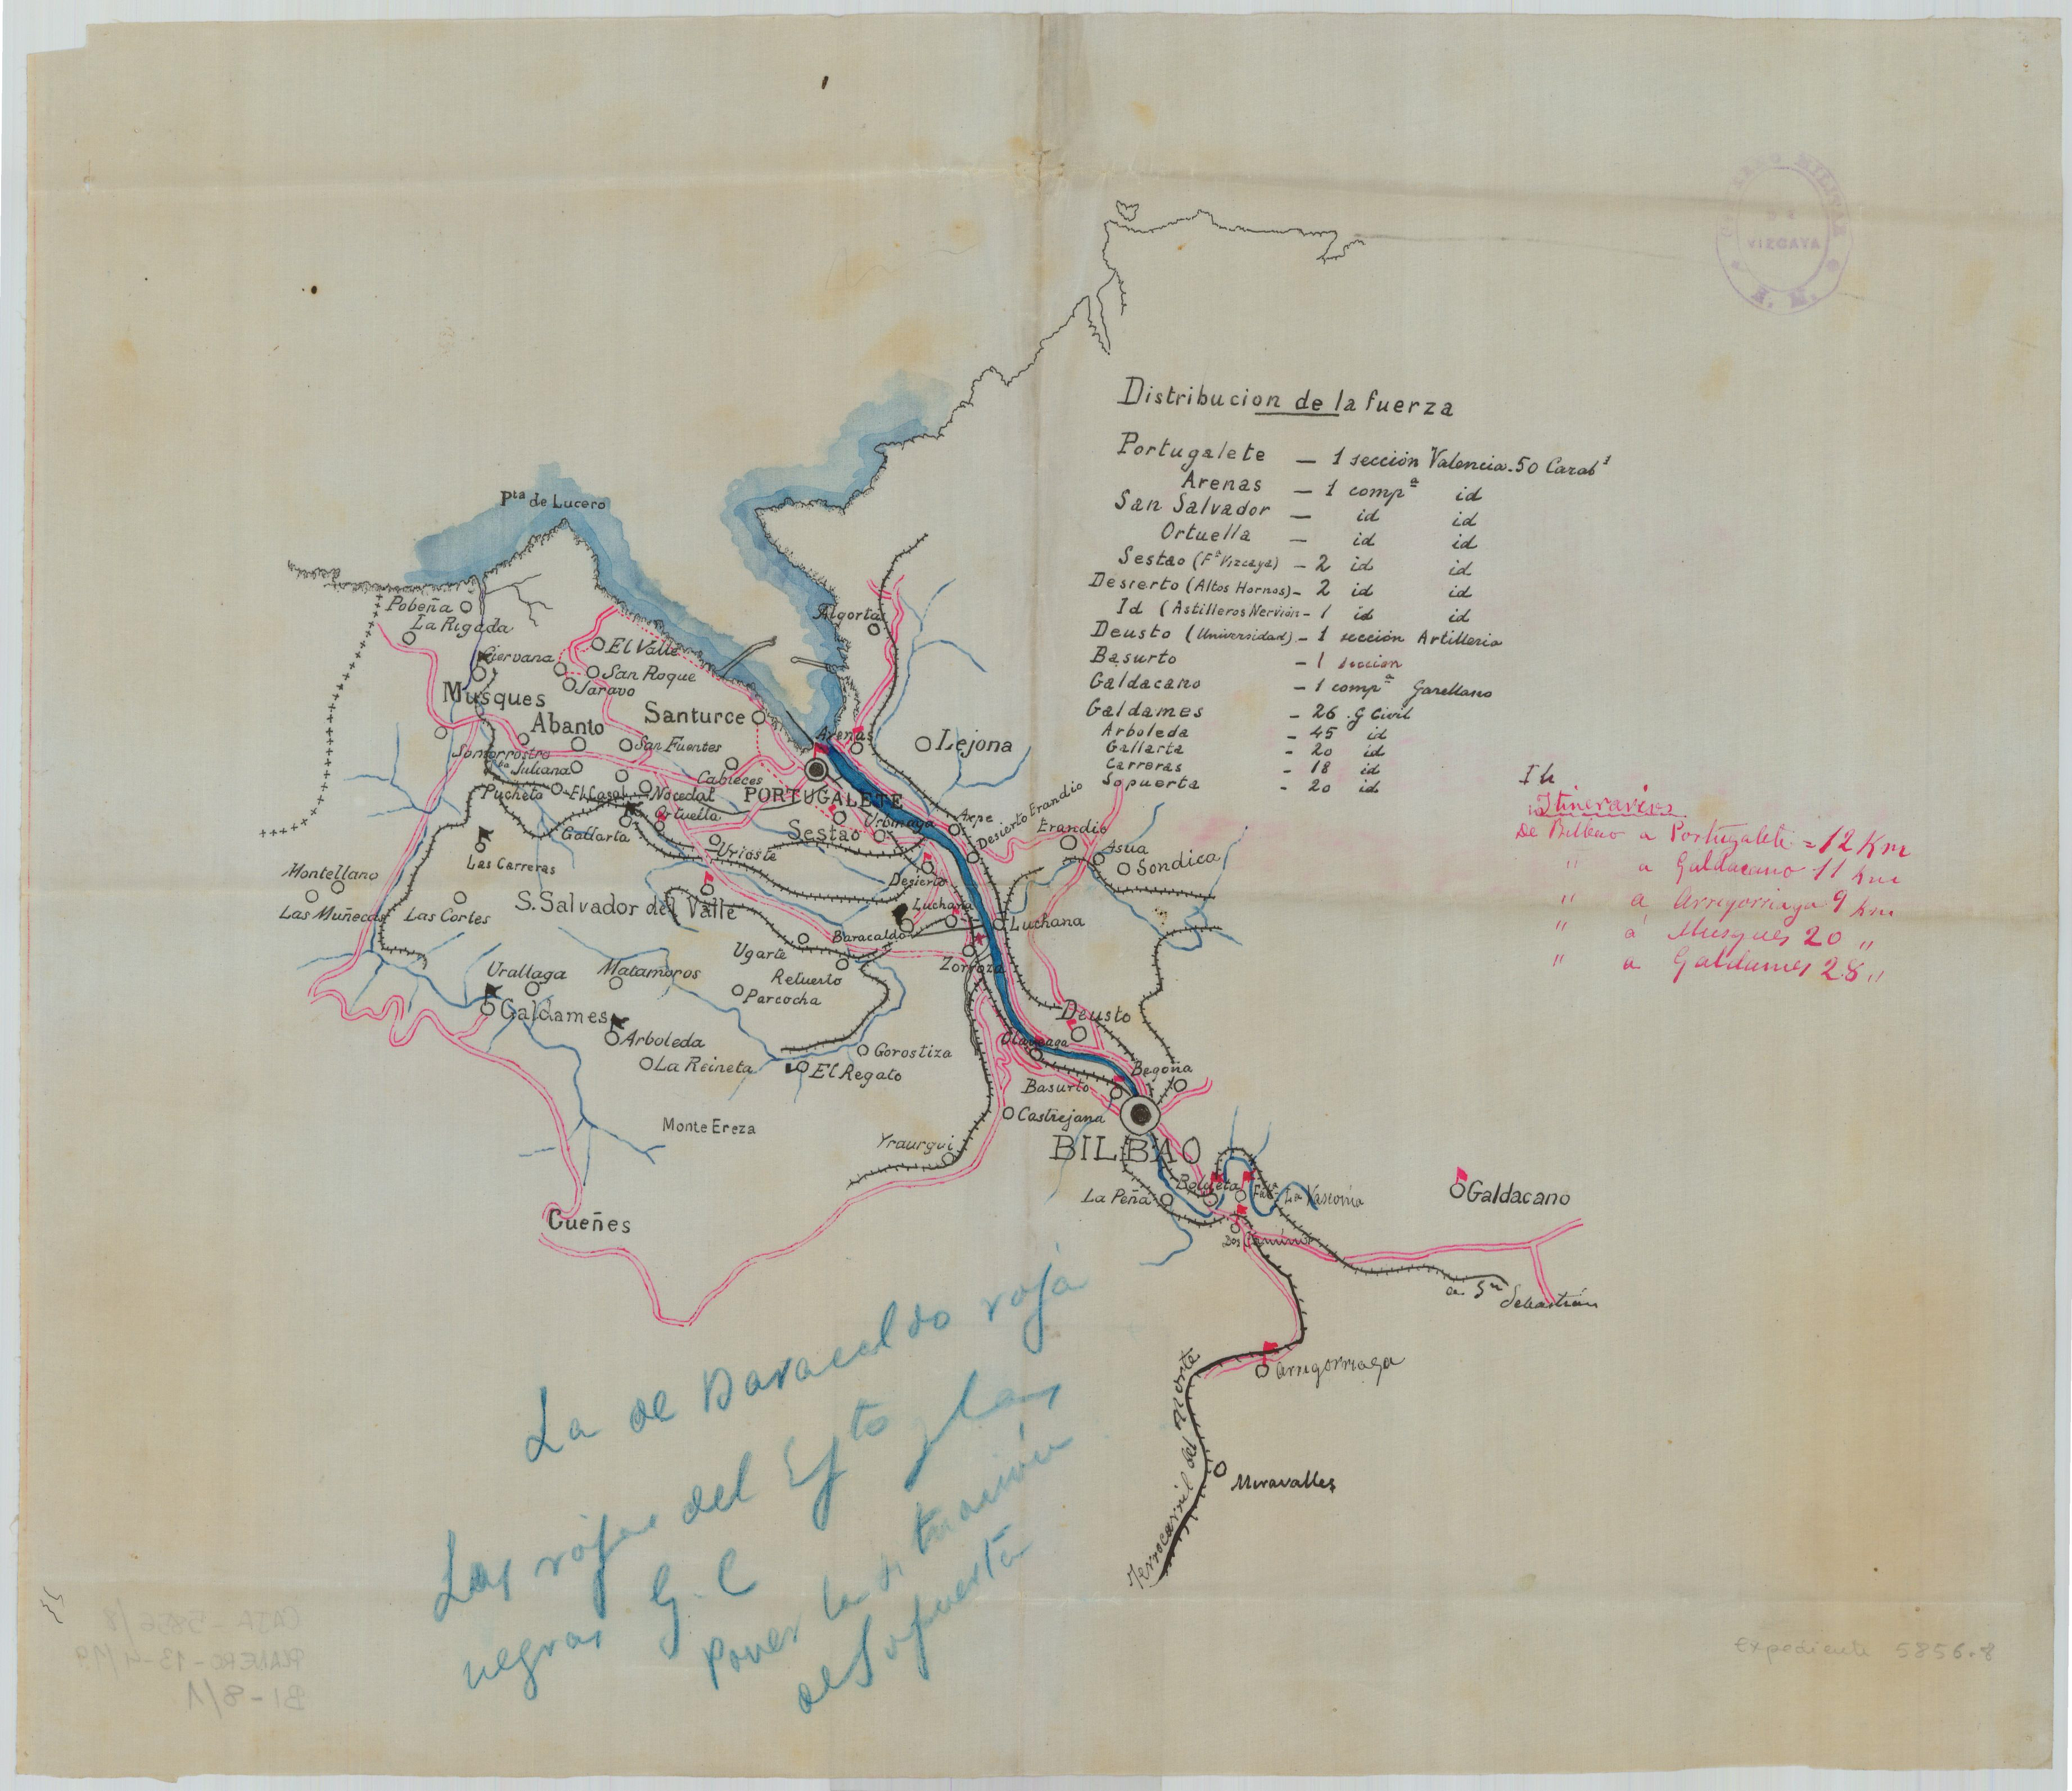 GOBIERNO MILITAR
DE
VIZCAYA
E. M.
Distribucion de la fuerza
Portugalete — 1 sección Valencia. 50 Carabs
Arenas — 1 compª id
San Salvador — id id
Ortuella — id id
Sestao (Fª Vizcaya) — 2 id id
Desierto (Altos Hornos) — 2 id id
Id (Astilleros Nervión — 1 id id
Deusto (Universidad) — 1 sección Artilleria
Basurto — 1 seccion
Galdacano — 1 compª Garellano
Galdames — 26 . G Civil
Arboleda — 45 id
Gallarta — 20 id
Carreras — 18 id
Sopuerta — 20 id
Itinerarios
De Bilbao a Portugalete = 12 Km
" a Galdacano 11 Km
" a Arrigorriaga 9 Km
" á Musques 20 "
" a Galdames 28 "
Pta de Lucero
Pobeña
La Rigada
Ciervana
El Valle
San Roque
Saravo
Algorta
Musques
Abanto
Santurce
Arenas
Lejona
Somorrostro
Sta Juliana
San Fuentes
Cabieces
Pucheto
El Casal
Nocedal
PORTUGALETE
Ortuella
Gallarta
Sestao
Urbinaga
Axpe
Desierto Erandio
Erandio
Asua
Sondica
Urioste
Desierto
Las Carreras
Montellano
Las Muñecas
Las Cortes
S. Salvador del Valle
Luchana
Baracaldo
Luchana
Zorroza
Ugarte
Retuerto
Parcocha
Urallaga
Matamoros
Galdames
Arboleda
La Reineta
Gorostiza
El Regato
Deusto
Olaveaga
Begoña
Basurto
Castrejana
Monte Ereza
Yraurgui
BILBAO
Gueñes
La Peña
Bolueta
Fábª La Vasconia
Dos Caminos
Galdacano
a Sn Sebastián
Arrigorriaga
Ferrocarril del Norte
Miravalles
La de Baracaldo roja
Las rojas del Eyto y las
negras G. C
poner la situación
de Sopuerta
CAJA - 5856/8
PLANERO - 13-4/79
BI - 8/1
Expediente 5856.8